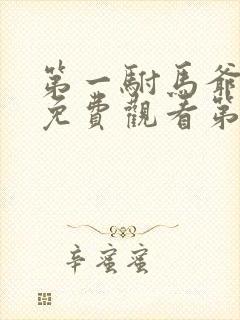 第一駙馬爺
免費觀看第
辛蜜蜜